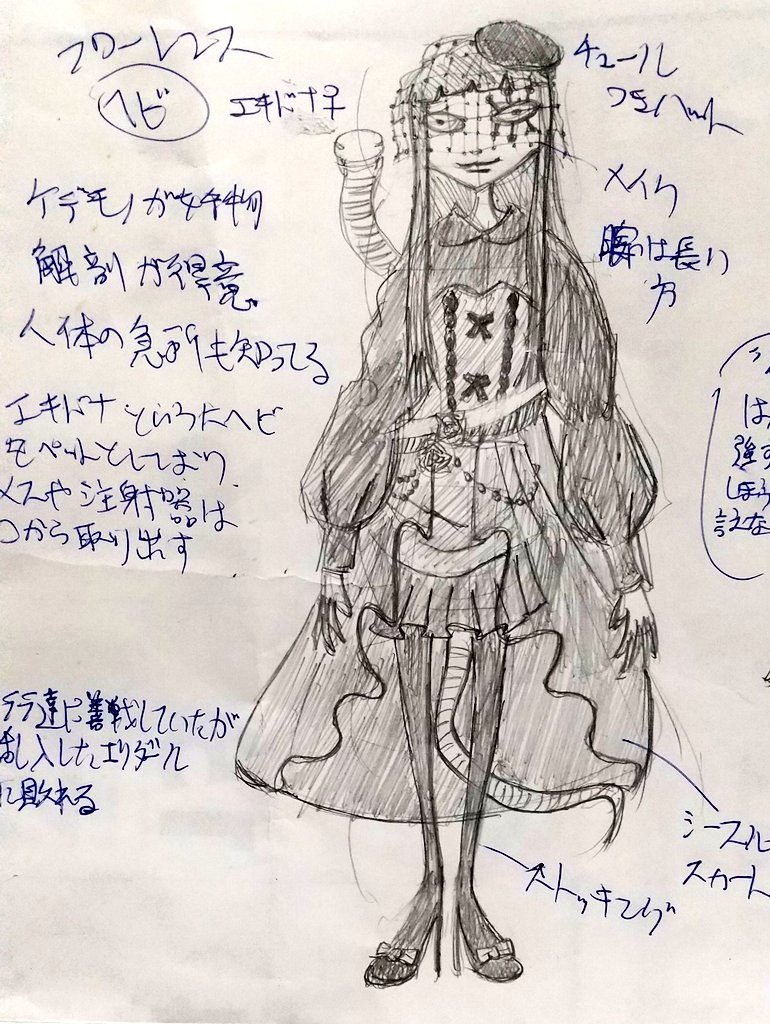 フローレンス
ヘビ
エキドナ子
チュール
つきハット
メイク
胴は長い
方
ケデモノが好物
解剖が得意
人体の急所も知ってる
エキドナという大ヘビ
をペットとしており
メスや注射器は
口から取り出す
は
強す
しほう
訳な
ララ達に善戦していたが
乱入したエリダル
に敗れる
シースル
スカート
ストッキング